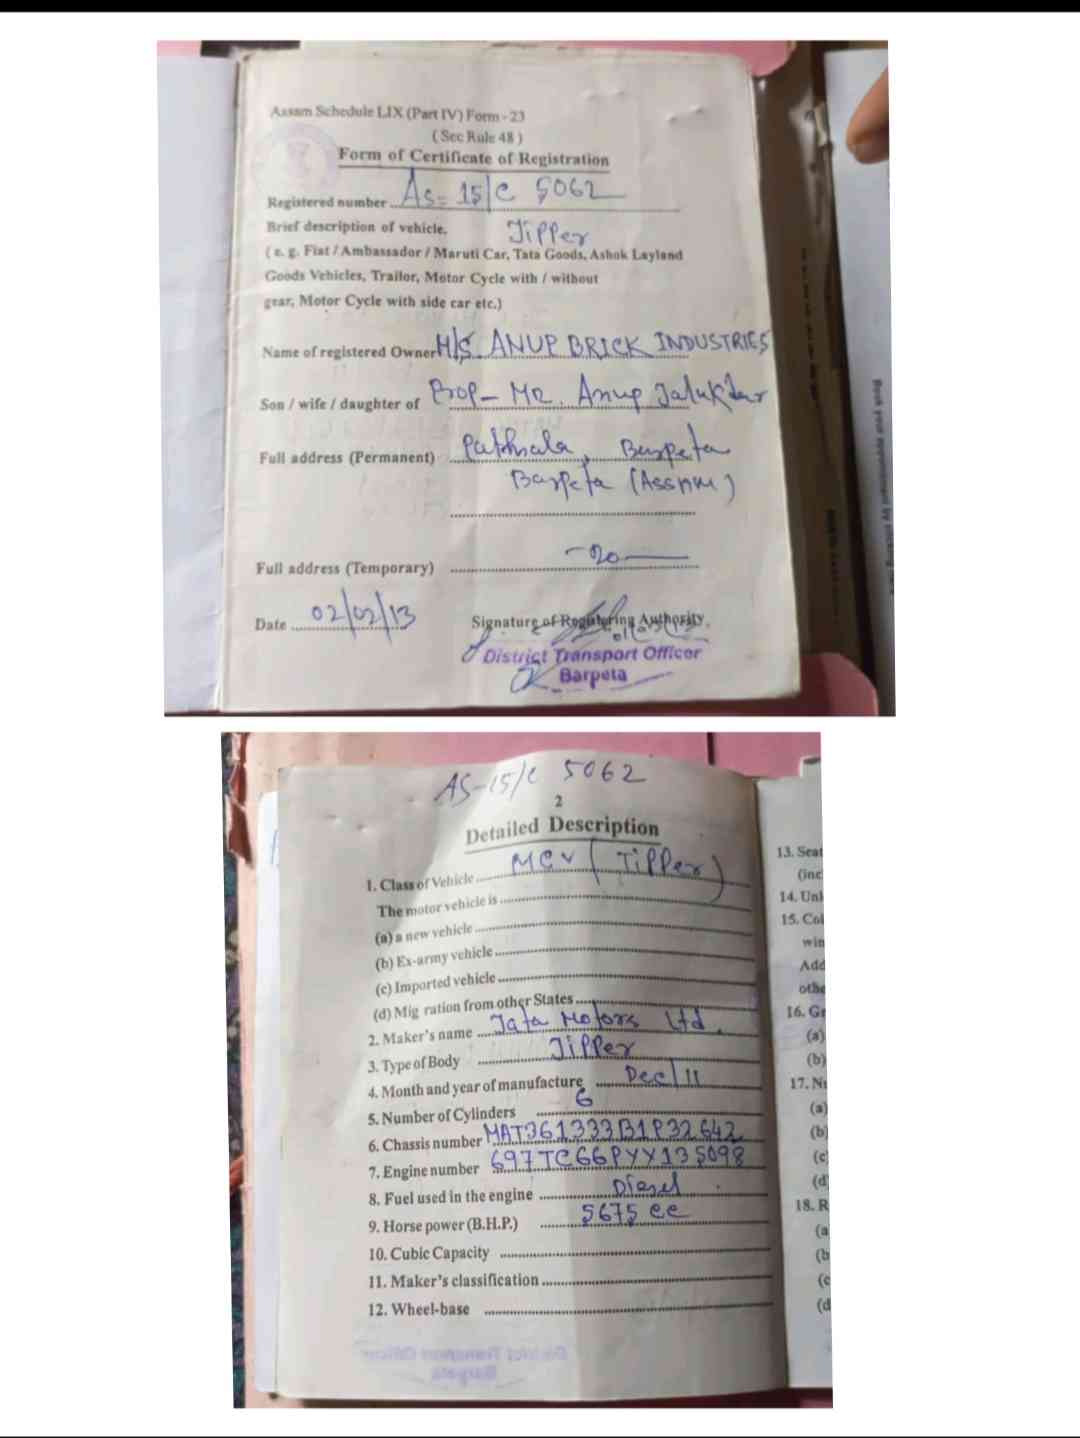 Assam Schedule LIX (Part IV) Form - 23
( Sec Rule 48 )
Form of Certificate of Registration
Registered number As-15/C 5062
Brief description of vehicle. Tipper
( e. g. Fiat / Ambassador / Maruti Car, Tata Goods, Ashok Layland
Goods Vehicles, Trailor, Motor Cycle with / without
gear, Motor Cycle with side car etc.)
Name of registered Owner M/S. ANUP BRICK INDUSTRIES
Son / wife / daughter of Prop- MR. Anup Talukdar
Full address (Permanent) Pathsala, Barpeta
Barpeta (Assam)
Full address (Temporary) -do-
Date 02/02/13 Signature of Registering Authority.
District Transport Officer
Barpeta
AS-15/C 5062
2
Detailed Description
1. Class of Vehicle MGV (Tipper)
The motor vehicle is
(a) a new vehicle
(b) Ex-army vehicle
(c) Imported vehicle
(d) Mig ration from other States
2. Maker's name Tata Motors Ltd.
3. Type of Body Tipper
4. Month and year of manufacture Dec/11
5. Number of Cylinders 6
6. Chassis number MAT361333B1P32642
7. Engine number 697TC66PYY135098
8. Fuel used in the engine Diesel
9. Horse power (B.H.P.) 5675 cc
10. Cubic Capacity
11. Maker's classification
12. Wheel-base
District Transport Officer
Barpeta
13. Seat
(inc
14. Unl
15. Col
win
Add
othe
16. Gr
(a)
(b)
17. Nu
(a)
(b)
(c)
(d)
18. R
(a
(b
(c
(d